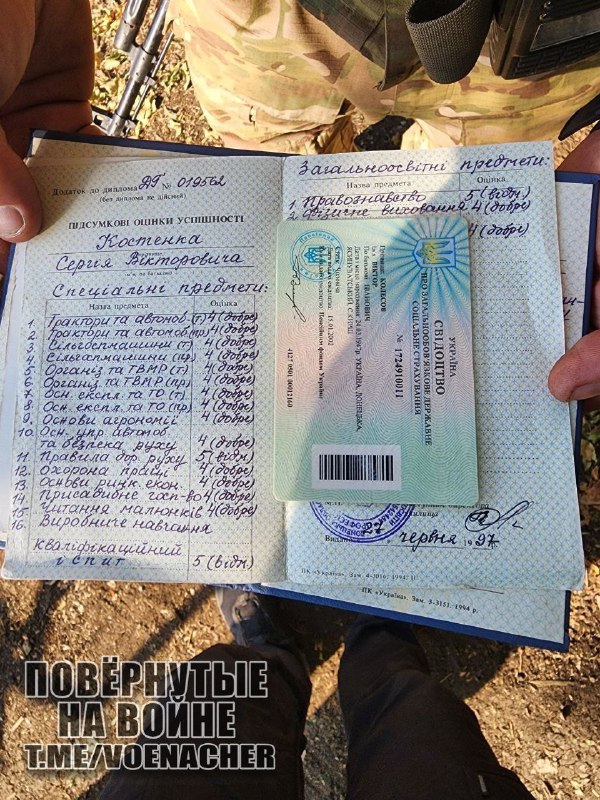 Додаток до диплома ДГ № 019562
(без диплома не дійсний)
ПІДСУМКОВІ ОЦІНКИ УСПІШНОСТІ
Костенка
Сергія Вікторовича
Спеціальні предмети:
Назва предмета Оцінка
1. Трактори та автомоб. (т) 4 (добре)
2. Трактори та автомоб (пр) 4 (добре)
3. Сільгоспмашини (т) 4 (добре)
4. Сільгоспмашини (пр) 4 (добре)
5. Організ та ТВМР (т) 4 (добре)
6. Організ та ТВМР (пр) 4 (добре)
7. Осн. експл. та ТО (т) 4 (добре)
8. Осн. експл. та ТО (пр) 4 (добре)
9. Основи агрономії 4 (добре)
10. Осн. упр. автомоб.
та безпека руху 4 (добре)
11. Правила дор. руху 5 (відм)
12. Охорона праці 4 (добре)
13. Основи ринк. екон. 4 (добре)
14. Присадибне госп-во 4 (добре)
15. Читання малюнків 4 (добре)
16. Виробниче навчання
Кваліфікаційний
іспит 5 (відм)
Загальноосвітні предмети:
Назва предмета Оцінка
1. Правознавство 5 (відм)
2. Фізичне виховання 4 (добре)
4 (добре)
УКРАЇНА
СВІДОЦТВО
ПРО ЗАГАЛЬНООБОВ'ЯЗКОВЕ ДЕРЖАВНЕ
СОЦІАЛЬНЕ СТРАХУВАННЯ
№ 1724910011
Прізвище КОЛЬСОВ
Ім'я ВІКТОР
По батькові ІВАНОВИЧ
УКРАЇНА, ДОНЕЦЬКА,
15.01.2002
Пенсійним фондом України
Видано 27 червня 1997
ПК «Україна». Зам. 4-3016. 1994 р.
ПК «Україна». Зам. 3-3151. 1994 р.
ПОВЁРНУТЫЕ
НА ВОЙНЕ
T.ME/VOENACHER